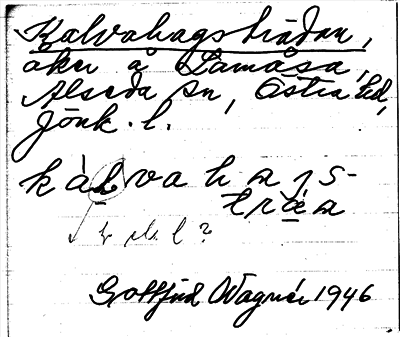 Kalvahagsträdan,
åker å Lamåsa,
Alseda sn, Östra hd,
Jönk. l.
kàlvahags-
träa
l?
Gottfrid Wagnér 1946